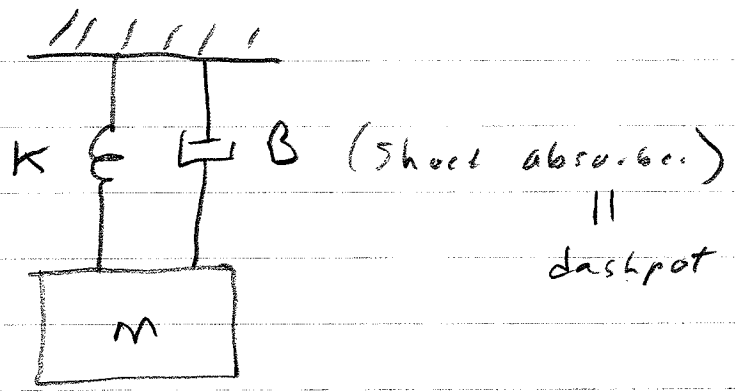 K B (Shock absorber)
||
dashpot
M